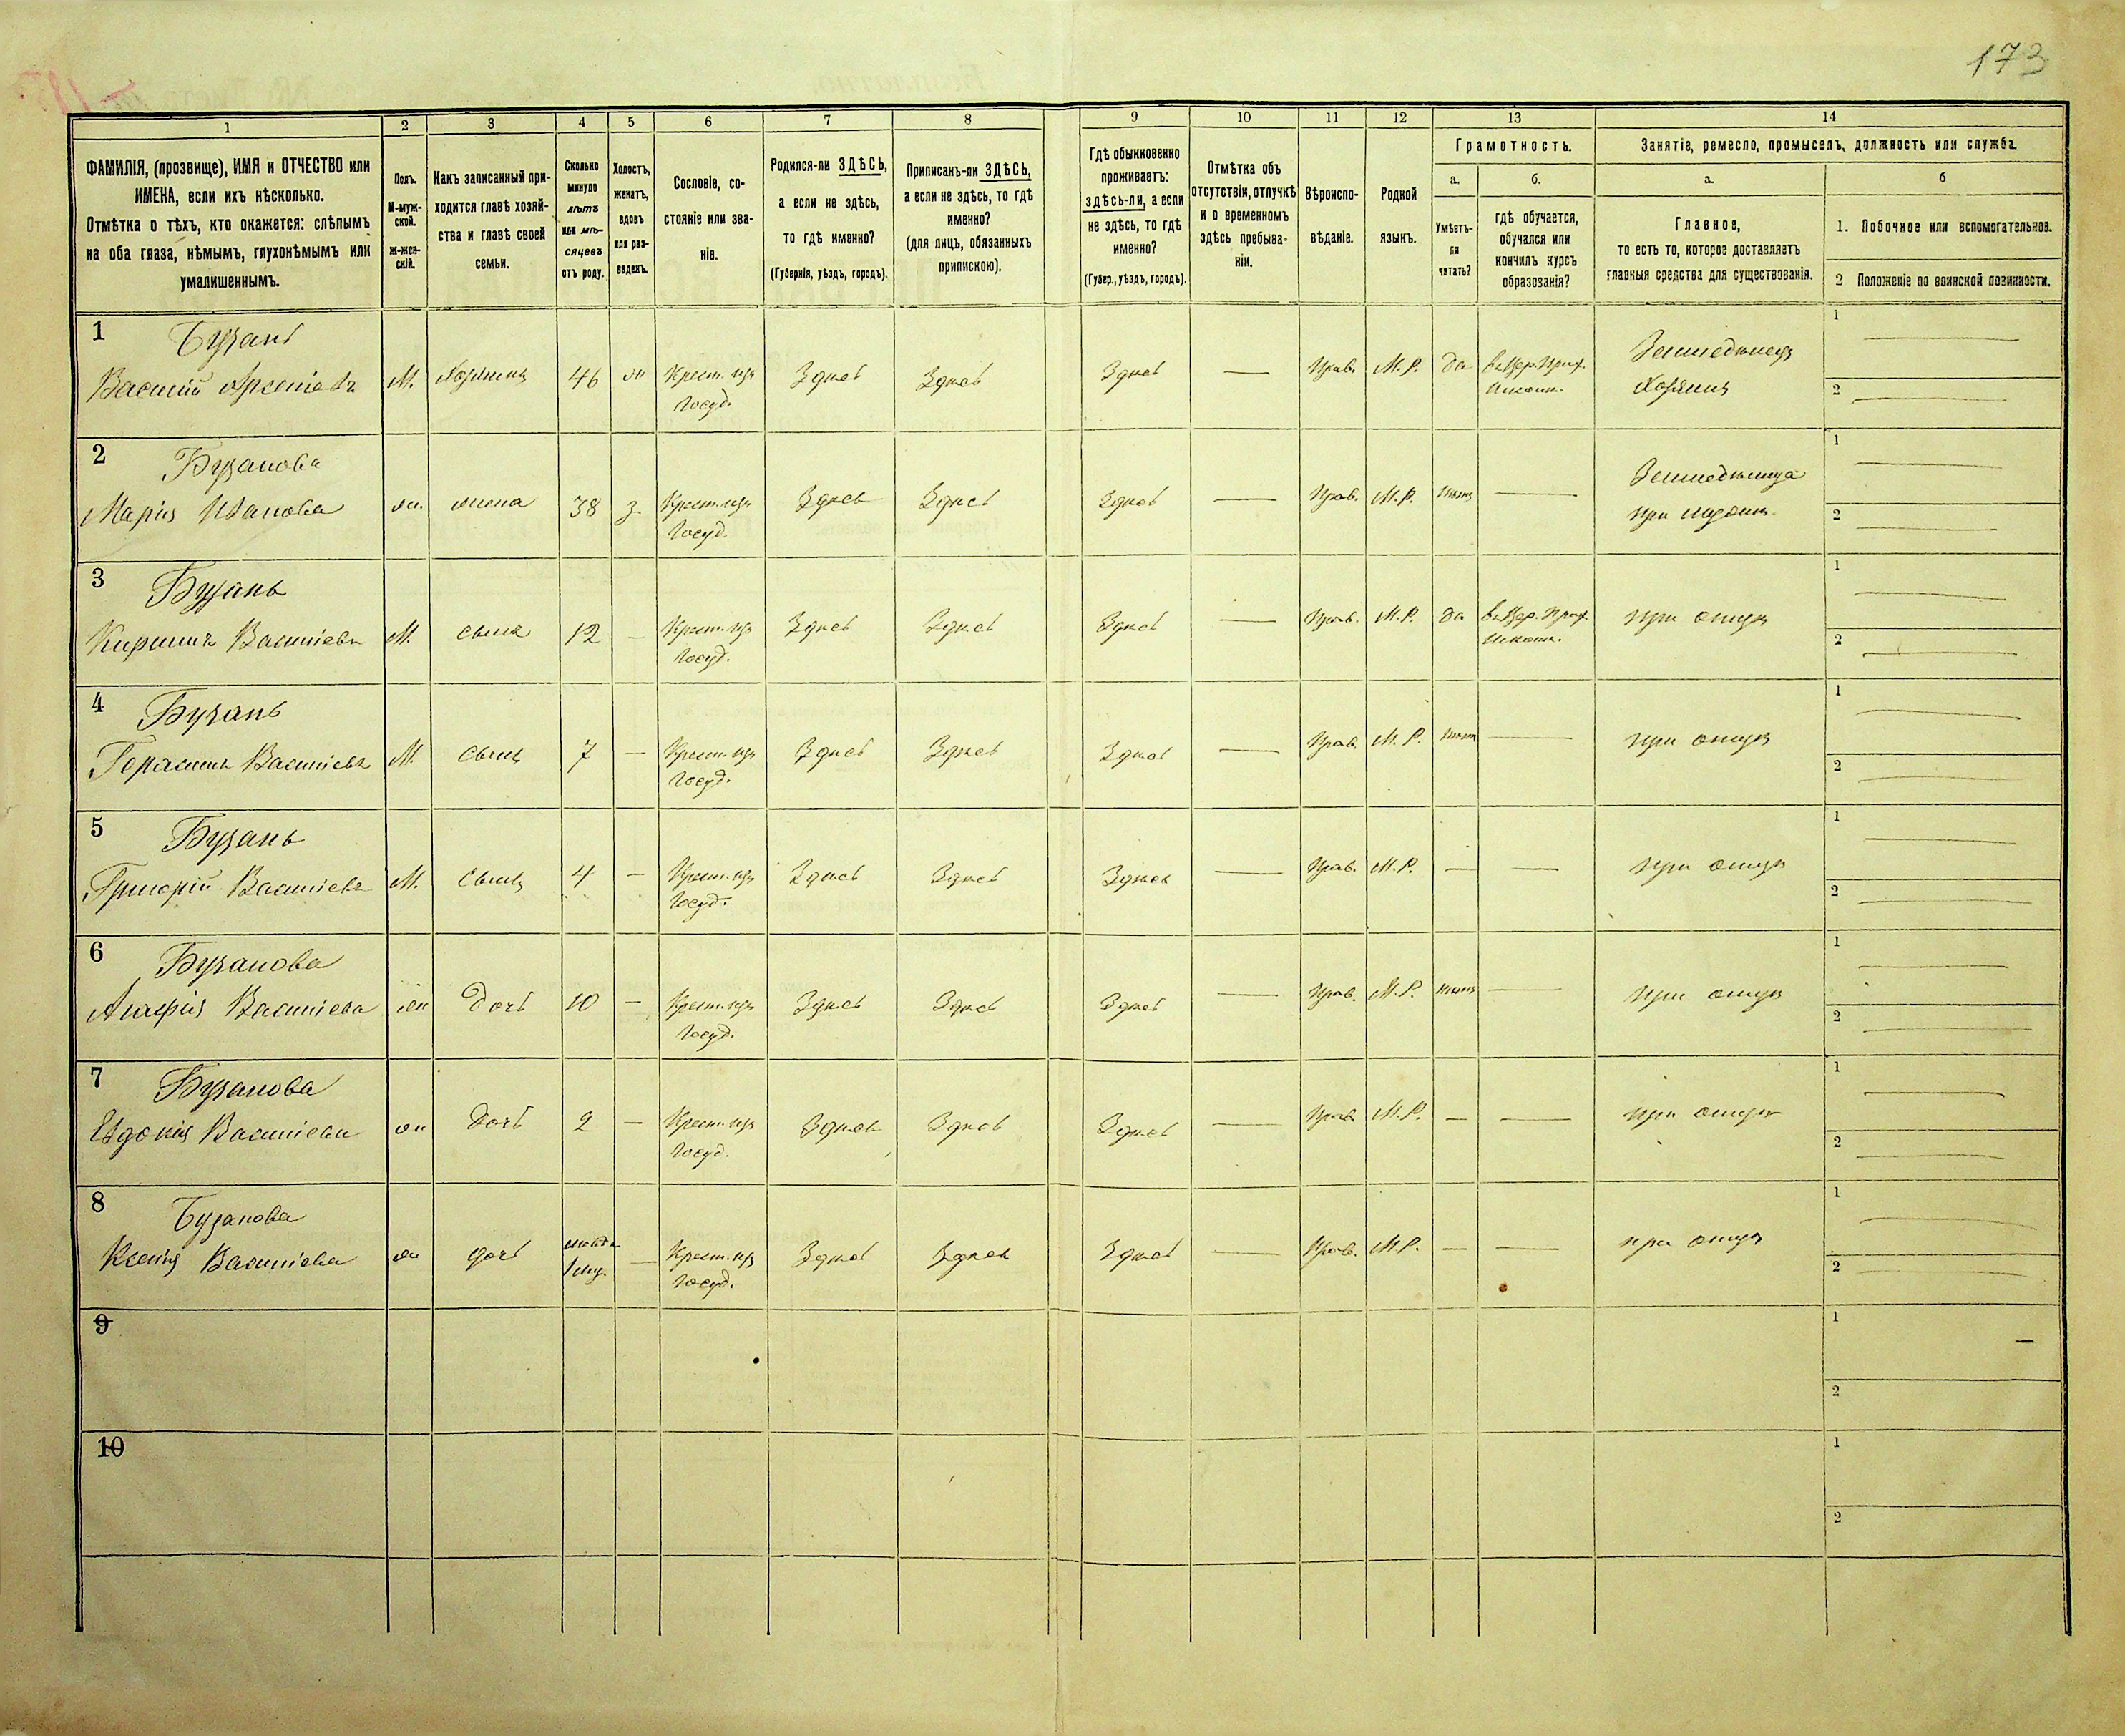 173
1
2
3
4
5
6
7
8
9
10
11
12
13
14
ФАМИЛІЯ, (прозвище), ИМЯ и ОТЧЕСТВО или
ИМЕНА, если ихъ нѣсколько.
Отмѣтка о тѣхъ, кто окажется: слѣпымъ
на оба глаза, нѣмымъ, глухонѣмымъ или
умалишеннымъ.
Полъ.
М-муж-
ской.
Ж-жен-
скій.
Какъ записанный при-
ходится главѣ хозяй-
ства и главѣ своей
семьи.
Сколько
минуло
лѣтъ
или мѣ-
сяцевъ
отъ роду.
Холостъ,
женатъ,
вдовъ
или раз-
веденъ.
Сословіе, со-
стояніе или зва-
ніе.
Родился-ли ЗДѢСЬ,
а если не здѣсь,
то гдѣ именно?
(Губернія, уѣздъ, городъ).
Приписанъ-ли ЗДѢСЬ,
а если не здѣсь, то гдѣ
именно?
(для лицъ, обязанныхъ
припискою).
Гдѣ обыкновенно
проживаетъ:
здѣсь-ли, а если
не здѣсь, то гдѣ
именно?
(Губер., уѣздъ, городъ).
Отмѣтка объ
отсутствіи, отлучкѣ
и о временномъ
здѣсь пребыва-
ніи.
Вѣроиспо-
вѣданіе.
Родной
языкъ.
Грамотность.
а.
Умѣетъ-
ли
читать?
б.
гдѣ обучается,
обучался или
кончилъ курсъ
образованія?
Занятіе, ремесло, промыселъ, должность или служба.
а.
Главное,
то есть то, которое доставляетъ
главныя средства для существованія.
б
1. Побочное или вспомогательное.
2 Положеніе по воинской повинности.
1 Бузань
Василій Арсеніевъ М. Хозяинъ 46 ж Крест. изъ
Госуд. Здѣсь Здѣсь Здѣсь — Прав. М.Р. да въ Цер. Прих.
Школѣ. Земледѣлецъ
Хозяинъ
1 —
2 —
2 Бузанова
Марія Иванова ж. жена 38 з. Крест. изъ
Госуд. Здѣсь Здѣсь Здѣсь — Прав. М.Р. нѣтъ — Земледѣлица
при
1 —
2 —
3 Бузань
Кирилъ Василіевъ М. сынъ 12 — Крест. изъ
Госуд. Здѣсь Здѣсь Здѣсь — Прав. М.Р. да въ Цер. Прих.
Школѣ. при отцѣ
1 —
2 —
4 Бузань
Герасимъ Василіевъ М. Сынъ 7 — Крест. изъ
Госуд. Здѣсь Здѣсь Здѣсь — Прав. М.Р. нѣтъ — при отцѣ
1 —
2 —
5 Бузань
Григорій Василіевъ М. Сынъ 4 — Крест. изъ
Госуд. Здѣсь Здѣсь Здѣсь — Прав. М.Р. — — при отцѣ
1 —
2 —
6 Бузанова
Агафія Василіева ж Дочь 10 — Крест. изъ
Госуд. Здѣсь Здѣсь Здѣсь — Прав. М.Р. нѣтъ — при отцѣ
1 —
2 —
7 Бузанова
Евдокія Василіева ж Дочь 2 — Крест. изъ
Госуд. Здѣсь Здѣсь Здѣсь — Прав. М.Р. — — при отцѣ
1 —
2 —
8 Бузанова
Ксенія Василіева ж дочь
1 — Крест. изъ
Госуд. Здѣсь Здѣсь Здѣсь — Прав. М.Р. — — при отцѣ
1 —
2 —
9
1 —
2
10
1
2